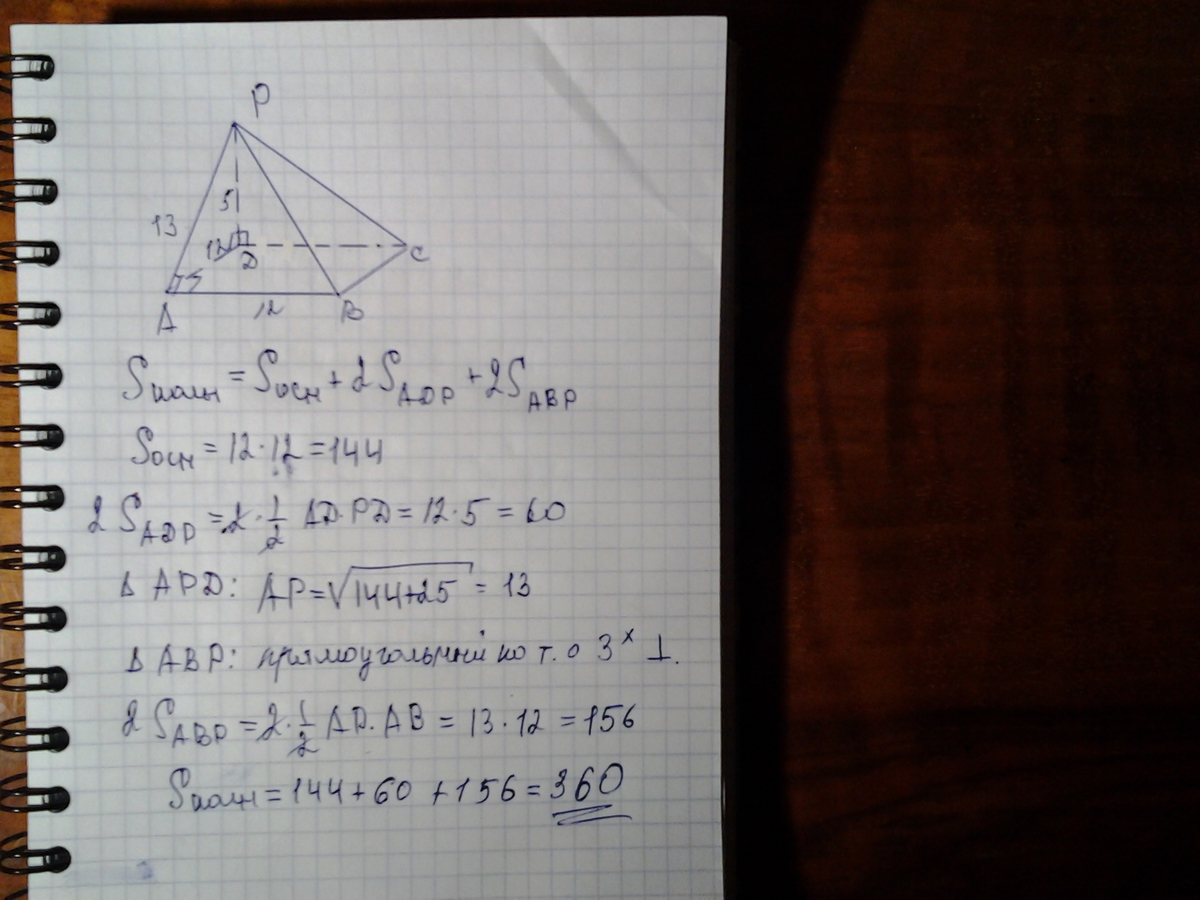 P
13
5
12
D
C
A
12
B
Sполн = Sосн + 2 S ADP + 2S ABP
Sосн = 12 · 12 = 144
2 S ADP = 2 · 1/2 AD · PD = 12 · 5 = 60
Δ APD: AP = √144+25 = 13
Δ ABP: прямоугольный по т. о 3ˣ ⊥.
2 S ABP = 2 · 1/2 AP · AB = 13 · 12 = 156
Sполн = 144 + 60 + 156 = 360